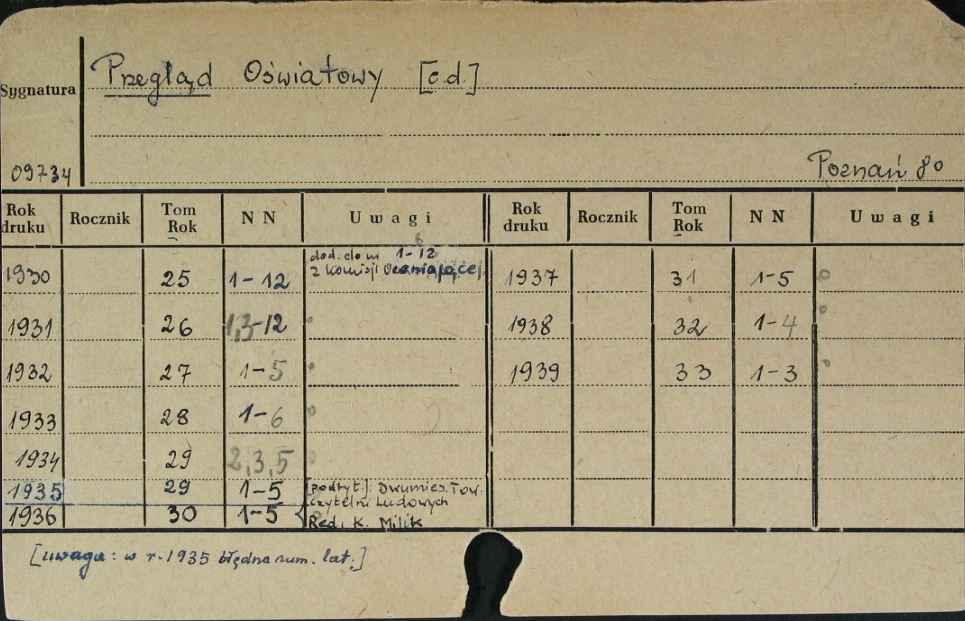 Przegląd Oświatowy [c.d.]
Sygnatura
09734
Poznań 8°
Rok druku Rocznik Tom Rok N N Uwagi Rok druku Rocznik Tom Rok N N Uwagi
dod. do nr 1-12
z Komisji Oceniającej
1930 25 1-12 1937 31 1-5
1931 26 1,3-12 1938 32 1-4
1932 27 1-5 1939 33 1-3
1933 28 1-6
1934 29 2,3,5
1935 29 1-5 [podtyt.]: Dwumies. Tow.
czytelni Ludowych
1936 30 1-5 Red. K. Milik
[uwaga: w r. 1935 błędna num. lat.]